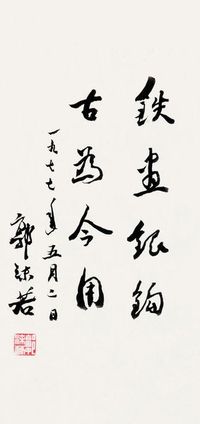 鉄畫銀鈎
古為今用
一九七七年五月二日
郭沫若